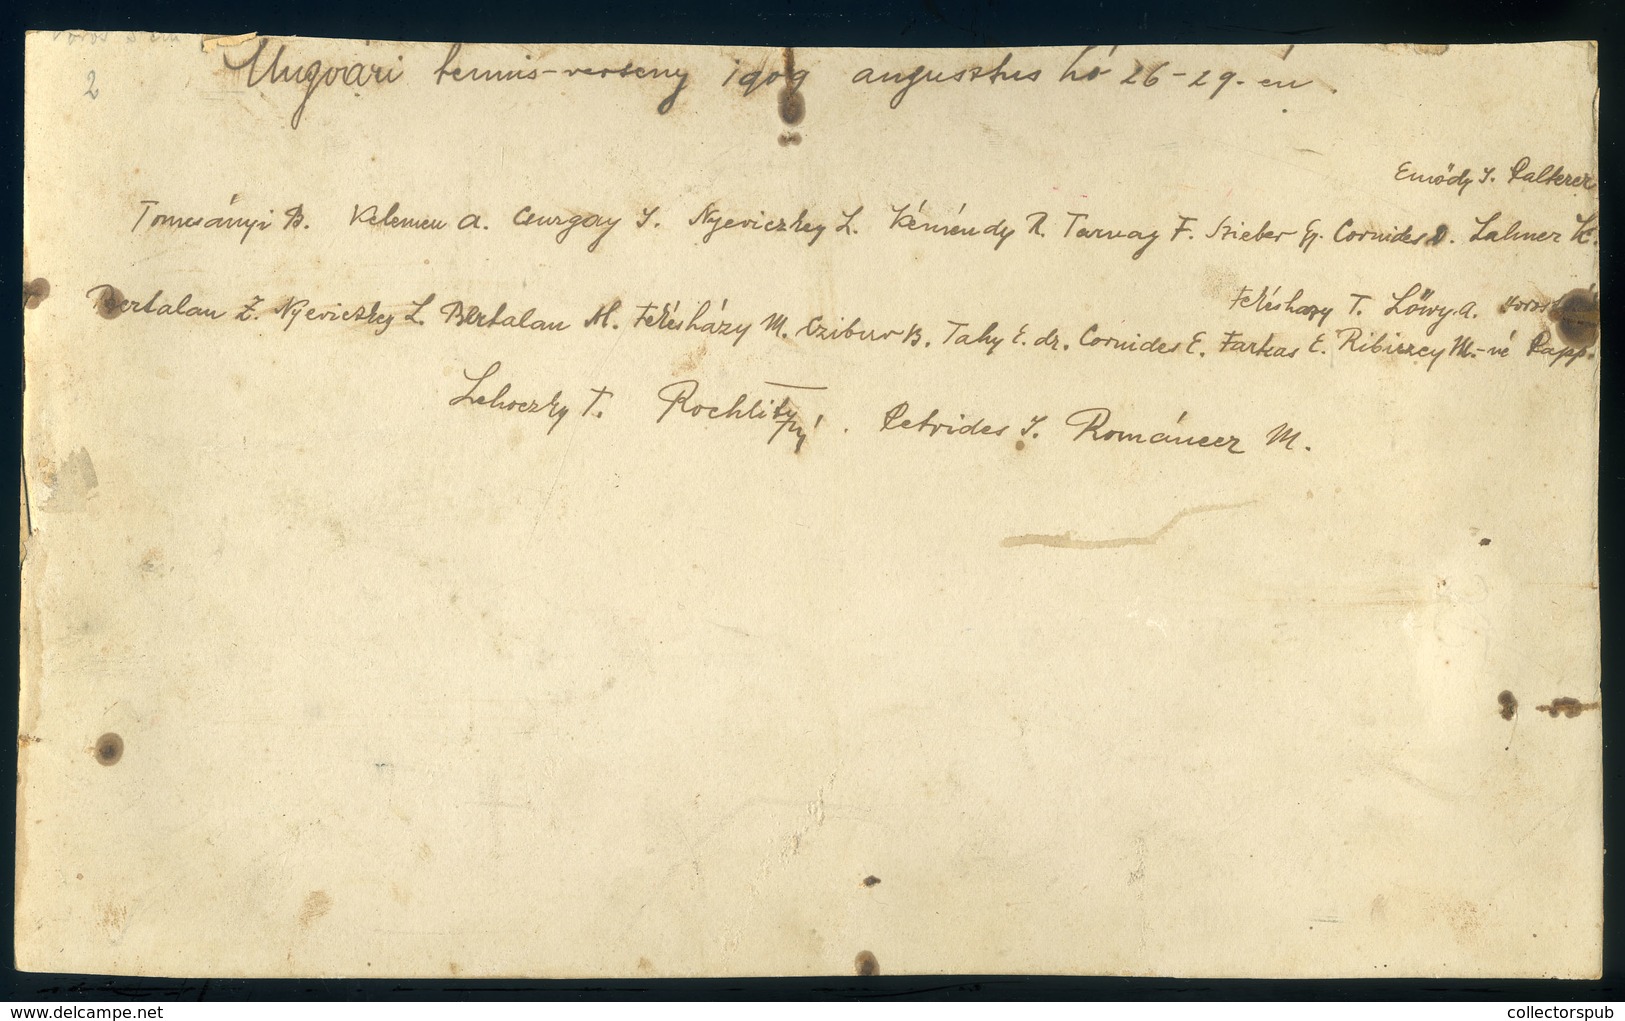 2
Ungvári tennis-verseny 1909 augusztus hó 26-29-én.
Emődy I. Palterer
Tomcsányi B. Kelemen A. Csurgay I. Nyeviczkey L. Kéméndy R. Tarnay F. Szieber Gy. Cornides D. Lahner K.
Fekésházy T. Lőwy A.
Bertalan Z. Nyeviczkey L. Bertalan M. Fekésházy M. Czibur B. Tahy E. dr. Cornides E. Farkas E. Ribiczey M.-né Papp.
Lehoczky T. Rochlitz . Petrides I. Románecz M.
www.delcampe.net
collectorspub